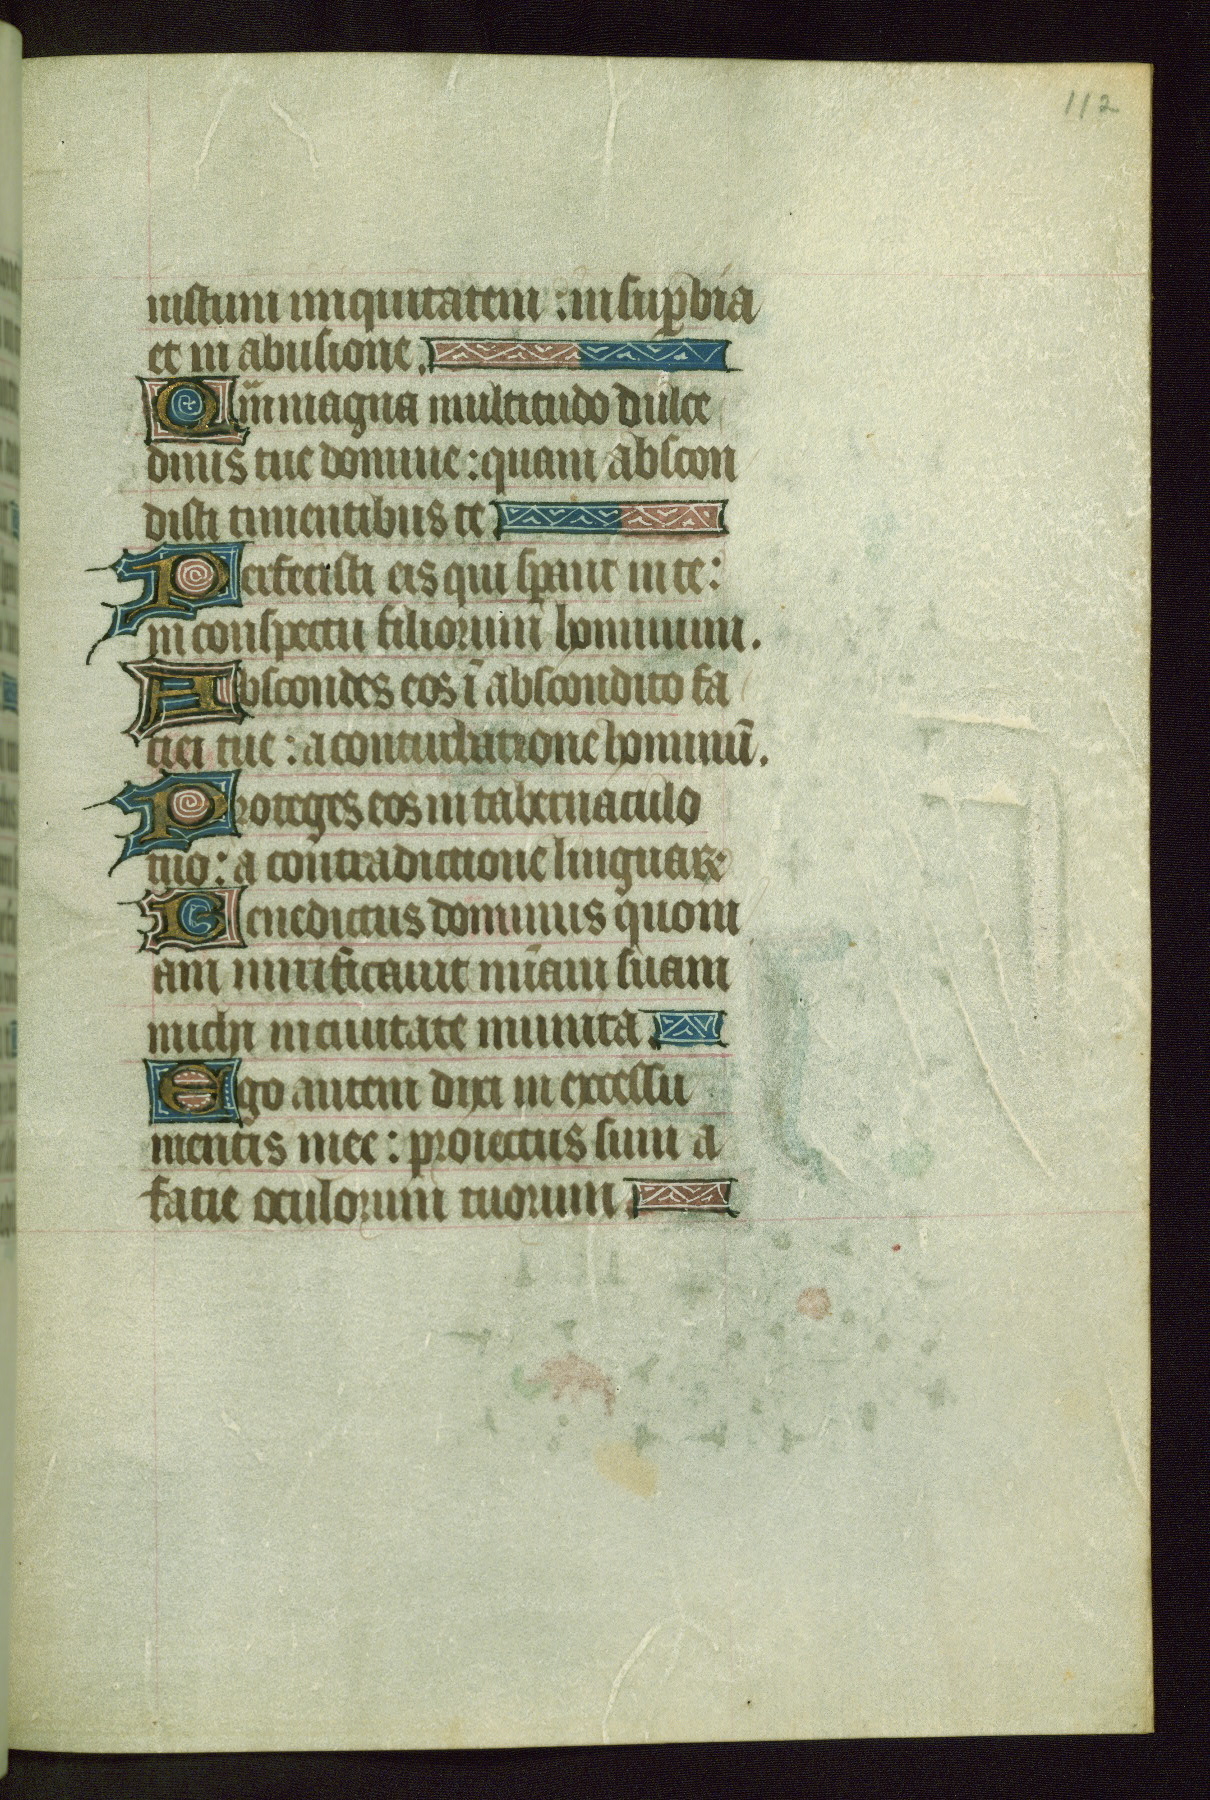 112
iustum iniquitatem : in sup̱bia
et in abusione .
Qm̄ magna multitudo dulce
dinis tue domine : quam abscon
disti timentibus te
Perfecisti eis qui sp̱ant in te :
in conspectu filiorum hominum .
Abscondes eos ī abscondito fa
ciei tue : a conturbatione hominū .
Proteges eos in tabernaculo
tuo : a contradictione linguaꝝ
Benedictus dominus quoni
am mirificauit mīam suam
michi in ciuitate munita .
Ego autem dixi in excessu
mentis mee : proiectus sum a
facie oculorum tuorum .